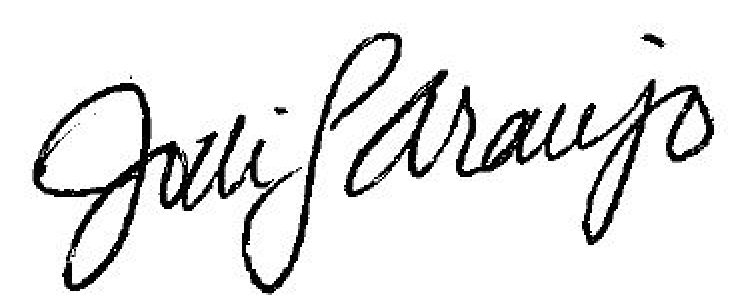 Jodi S Araujo